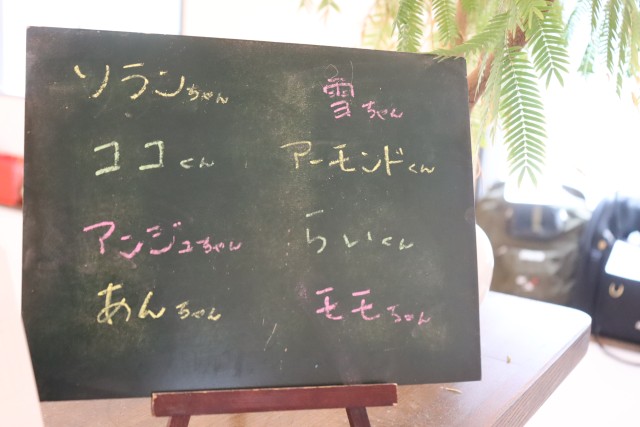 ソランちゃん
雪ちゃん
ココくん
アーモンドくん
アンジュちゃん
らいくん
あんちゃん
モモちゃん